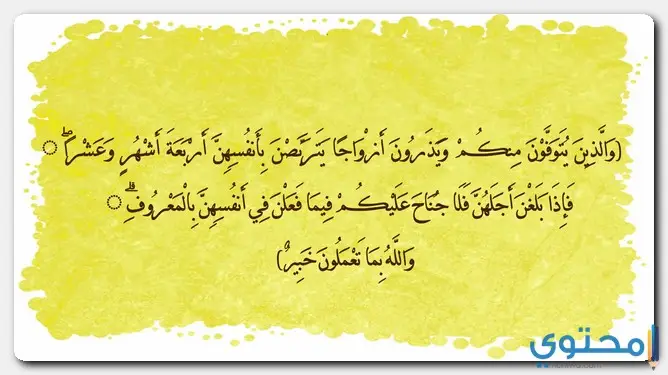 (وَالَّذِينَ يُتَوَفَّوْنَ مِنكُمْ وَيَذَرُونَ أَزْوَاجًا يَتَرَبَّصْنَ بِأَنفُسِهِنَّ أَرْبَعَةَ أَشْهُرٍ وَعَشْرًا ۖ
فَإِذَا بَلَغْنَ أَجَلَهُنَّ فَلَا جُنَاحَ عَلَيْكُمْ فِيمَا فَعَلْنَ فِي أَنفُسِهِنَّ بِالْمَعْرُوفِ ۗ
وَاللَّهُ بِمَا تَعْمَلُونَ خَبِيرٌ)
محتوي